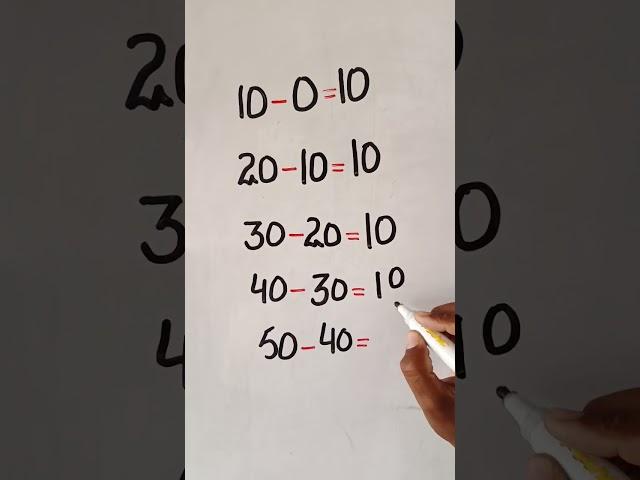 10-0=10
20-10=10
30-20=10
40-30=10
50-40=